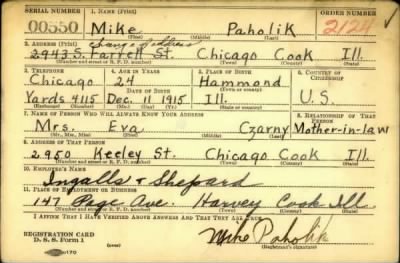 SERIAL NUMBER 1. NAME (Print) ORDER NUMBER
00550 Mike Paholik 2124
(First) (Middle) (Last)
2. ADDRESS (Print) Change of address
2943 S. Farrell St. Chicago Cook Ill.
(Number and street or R. F. D. number) (Town) (County) (State)
3. TELEPHONE 4. AGE IN YEARS 5. PLACE OF BIRTH 6. COUNTRY OF CITIZENSHIP
Chicago 24 Hammond
DATE OF BIRTH
Yards 4115 Dec. 11 1915 Ill. U.S.
(Exchange) (Number) (Mo.) (Day) (Yr.) (State or country)
7. NAME OF PERSON WHO WILL ALWAYS KNOW YOUR ADDRESS 8. RELATIONSHIP OF THAT PERSON
Mrs. Eva Czarny Mother-in-law
(Mr., Mrs., Miss) (First) (Middle) (Last)
9. ADDRESS OF THAT PERSON
2950 Keeley St. Chicago Cook Ill.
(Number and street or R. F. D. number) (Town) (County) (State)
10. EMPLOYER'S NAME
Ingalls & Shepard
11. PLACE OF EMPLOYMENT OR BUSINESS
147 Page Ave. Harvey Cook Ill.
(Number and street or R. F. D. number) (Town) (County) (State)
I AFFIRM THAT I HAVE VERIFIED ABOVE ANSWERS AND THAT THEY ARE TRUE.
REGISTRATION CARD
D. S. S. Form 1 Mike Paholik
(Registrant's signature)